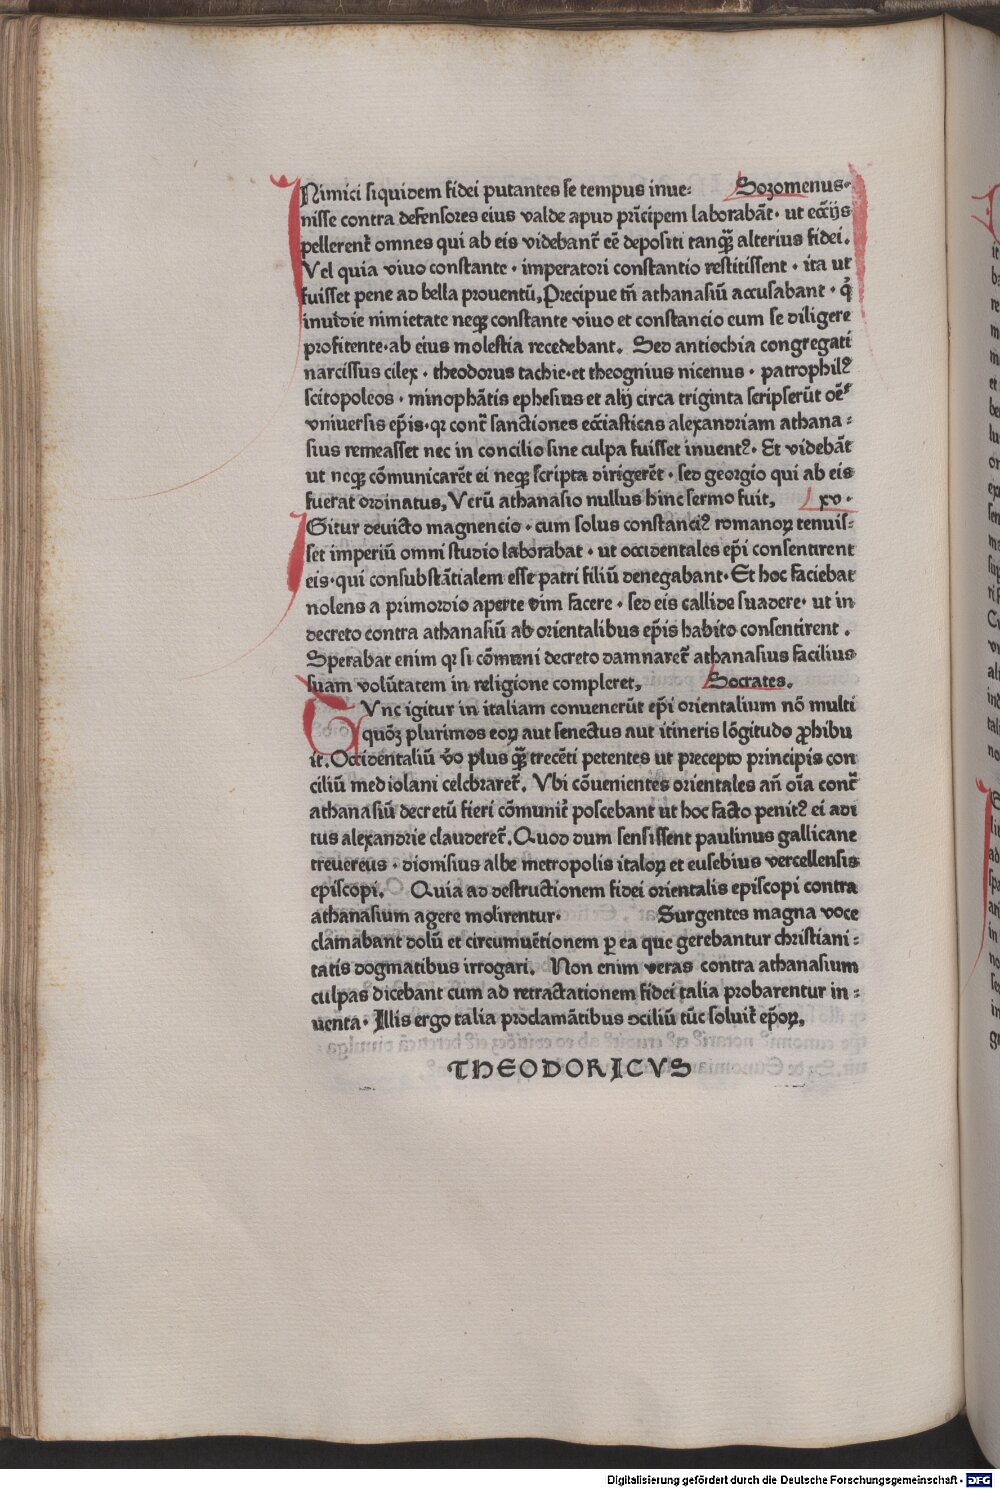 INimici siquidem fidei putantes se tempus inue: Sozomenus·
nisse contra defensores eius valde apud prīcipem laborabāt· ut eccījs
pellerent̄ omnes qui ab eis videbant̄ eē depositi tanqꝫ̄ alterius fidei.
Vel quia viuo constante · imperatori constantio restitissent · ita ut
fuisset pene ad bella prouentū, Precipue tn̄ athanasiū accusabant · qđ
inuidie nimietate neqꝫ constante viuo et constancio eum se diligere
profitente·ab eius molestia recedebant. Sed antiochia congregati
narcissus cilex · theodorus tachie·et theognius nicenus · patrophilꝰ
scitopoleos · minophātis ephesius et alij circa triginta scripserūt oēs
vniuersis ep̄is·qꝛ cont̄ sanctiones ecc̄iasticas alexandriam athana:
sius remeasset nec in concilio sine culpa fuisset inuentꝰ. Et videbāt
ut neqꝫ cōmunicarēt ei neqꝫ scripta dirigerēt · sed georgio qui ab eis
fuerat ordinatus, Verū athanasio nullus hinc sermo fuit, xv·
IGitur deuicto magnencio · cum solus constanciꝰ romanoꝝ tenuis:
set imperiū omni studio laborabat · ut occidentales ep̄i consentirent
eis·qui consubstātialem esse patri filiū denegabant·Et hoc faciebat
nolens a primordio aperte vim facere · sed eis callide suadere· ut in
decreto contra athanasiū ab orientalibus ep̄is habito consentirent .
Sperabat enim qꝛ si cōmuni decreto damnaret̄ athanasius facilius
suam volūtatem in religione compleret, Socrates.
TVnc igitur in italiam conuenerūt ep̄i orientalium nō multi
quōꝫ plurimos eoꝝ aut senectus aut itineris lōgitudo ꝓhibu
it. Occidentaliū v̄o plus qꝫ̄ trecēti petentes ut precepto principis con
ciliū mediolani celebraret̄. Vbi cōuenientes orientales an̄ oīa cont̄
athanasiū decretū fieri cōmunit̄ poscebant ut hoc facto penitꝰ ei adi
tus alexandrie clauderet̄. Quod dum sensissent paulinus gallicane
treuereus · dionisius albe metropolis italoꝝ et eusebius vercellensis
episcopi. Quia ad destructionem fidei orientalis episcopi contra
athanasium agere molirentur· Surgentes magna voce
clamabant dolū et circumuētionem ꝑ ea que gerebantur christiani:
tatis dogmatibus irrogari. Non enim veras contra athanasium
culpas dicebant cum ad retractationem fidei talia probarentur in:
uenta· Illis ergo talia proclamātibus ↄciliū tūc soluit̄ ep̄oꝝ,
THEODORICVS
Digitalisierung gefördert durch die Deutsche Forschungsgemeinschaft · DFG